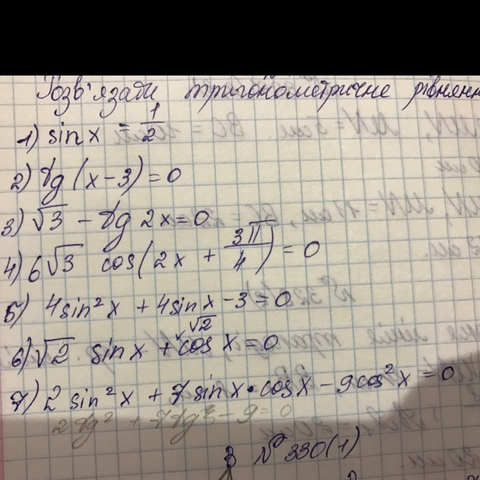 Розв'язати тригонометричне рівнянн
1) sin x = 1/2
2) tg (x-3) = 0
3) √3 - tg 2x = 0
4) 6√3 cos(2x + 3π/4) = 0
5) 4sin²x + 4sin x - 3 = 0
6) √2 sin x + √2 cos x = 0
7) 2 sin²x + 7 sin x • cos x - 9cos²x = 0
2tg² + 7tg - 9 = 0
№ 330(1)